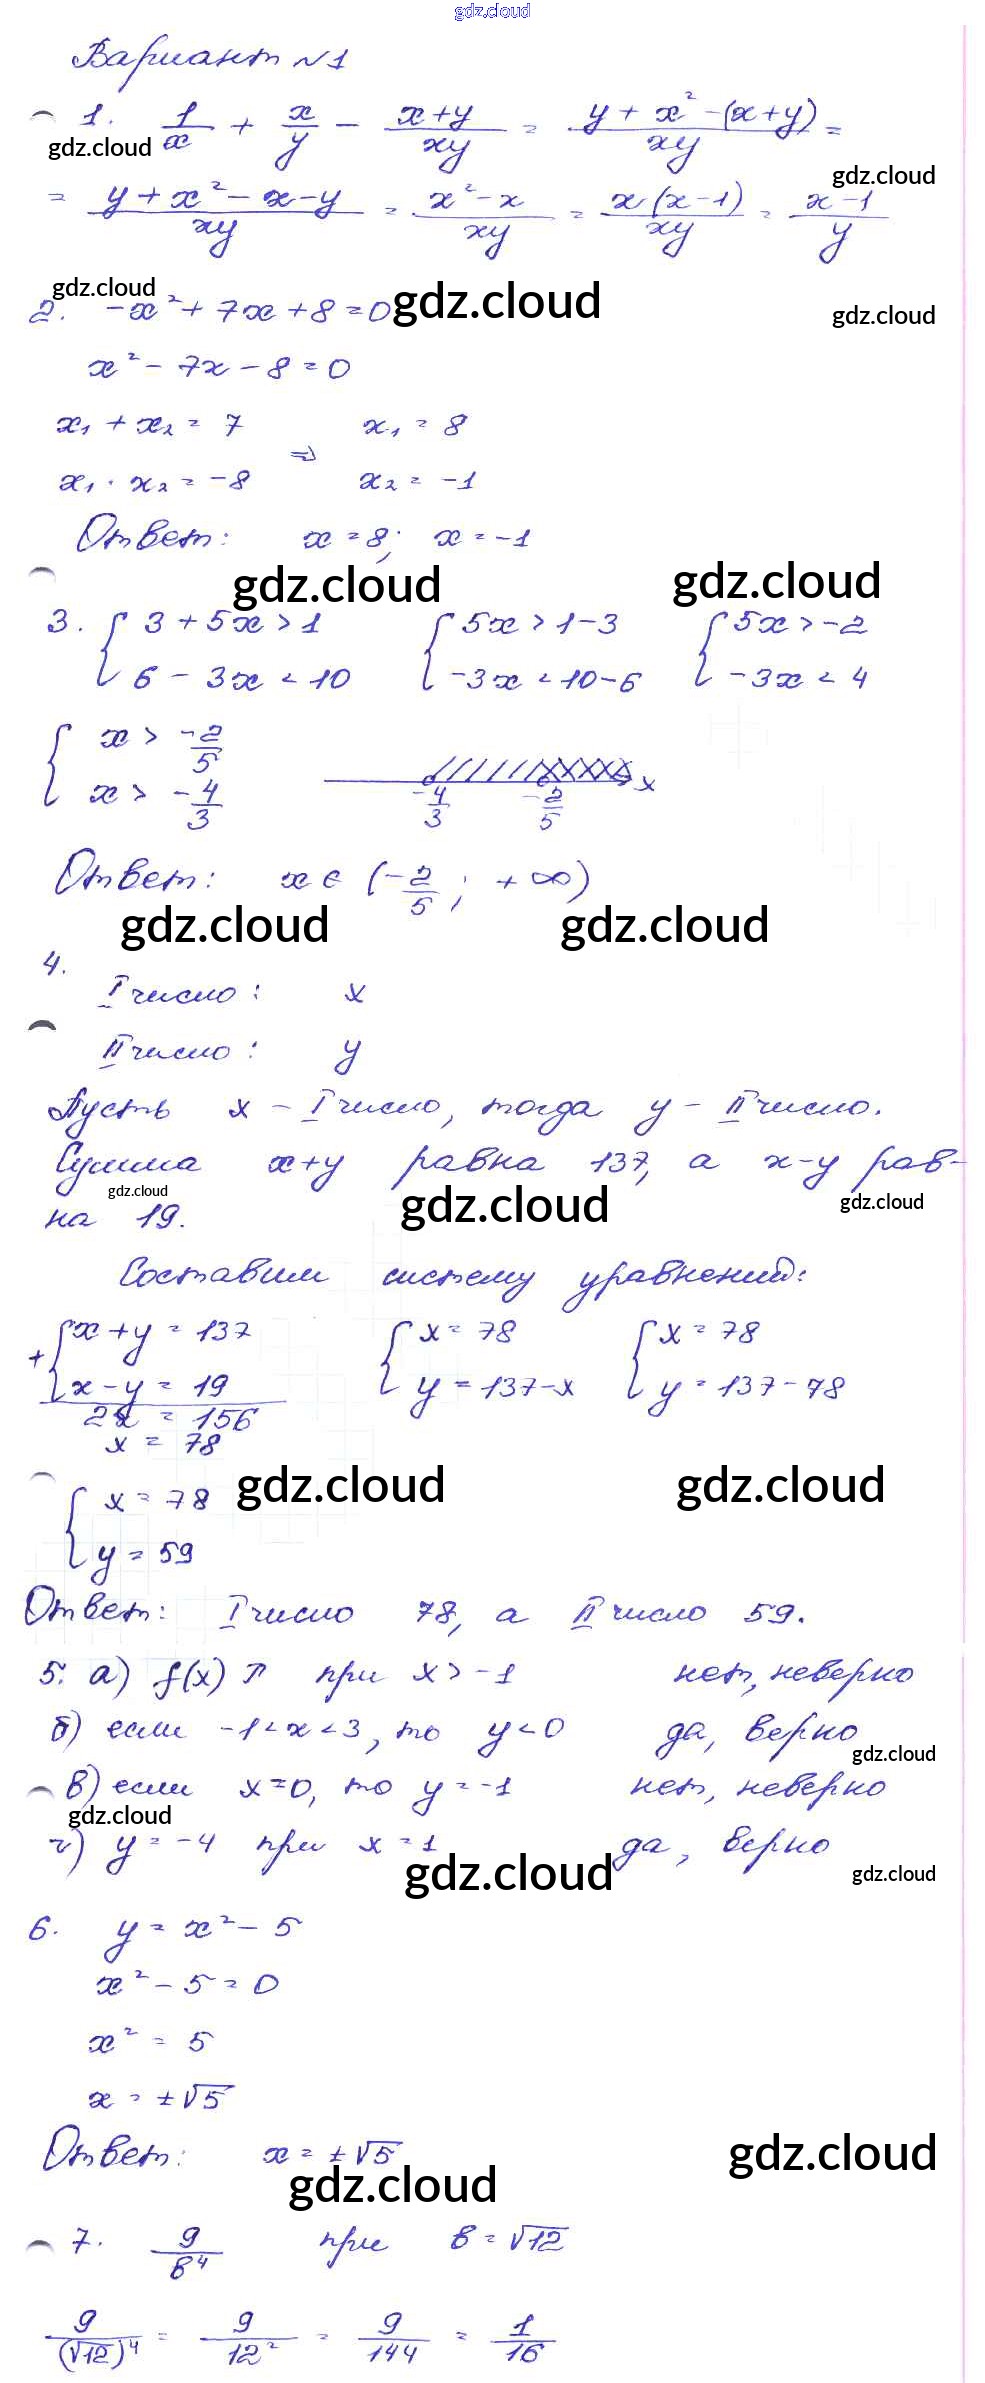 gdz.cloud
Вариант №1
1. 1/x + x/y - (x+y)/xy = (y + x² - (x+y))/xy =
gdz.cloud
gdz.cloud
= (y + x² - x - y)/xy = (x² - x)/xy = x(x-1)/xy = (x-1)/y
gdz.cloud gdz.cloud gdz.cloud
2. -x² + 7x + 8 = 0
x² - 7x - 8 = 0
x₁ + x₂ = 7 x₁ = 8
⇒
x₁ · x₂ = -8 x₂ = -1
Ответ: x = 8; x = -1
gdz.cloud gdz.cloud
3. { 3 + 5x > 1 { 5x > 1-3 { 5x > -2
6 - 3x < 10 -3x < 10-6 -3x < 4
{ x > -2/5
x > -4/3 -4/3 -2/5 x
Ответ: x ∈ (-2/5; +∞)
gdz.cloud gdz.cloud
4.
I число: x
II число: y
Пусть x - I число, тогда y - II число.
Сумма x+y равна 137, а x-y рав-
gdz.cloud gdz.cloud gdz.cloud
на 19.
Составим систему уравнений:
+ { x + y = 137 { x = 78 { x = 78
x - y = 19 y = 137-x y = 137-78
2x = 156
x = 78
gdz.cloud gdz.cloud
{ x = 78
y = 59
Ответ: I число 78, а II число 59.
5. а) f(x) ↗ при x > -1 нет, неверно
б) если -1 < x < 3, то y < 0 да, верно
gdz.cloud
в) если x=0, то y = -1 нет, неверно
gdz.cloud
г) y = -4 при x = 1 да, верно
gdz.cloud gdz.cloud
6. y = x² - 5
x² - 5 = 0
x² = 5
x = ±√5
Ответ: x = ±√5
gdz.cloud gdz.cloud
7. 9/в⁴ при в = √12
9/(√12)⁴ = 9/12² = 9/144 = 1/16